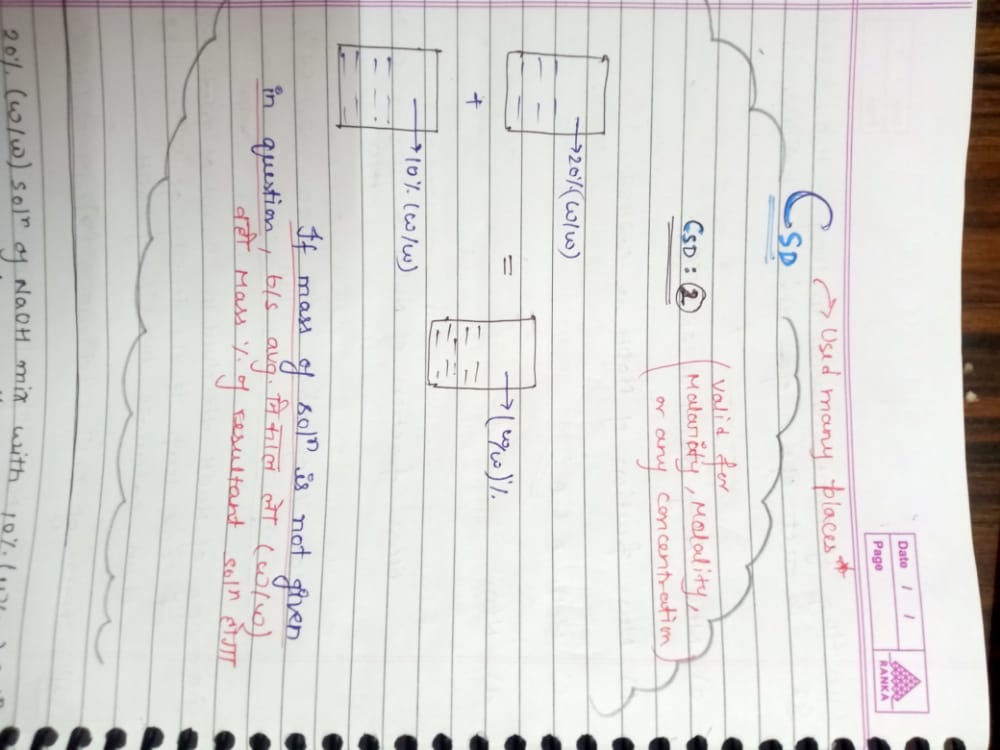 Date / /
Page
RANKA
→ Used many places*
CSD
CSD : ②
(valid for
Molarity, Molality,
or any concentration)
→20% (w/w)
=
→(w/w)%
+
→10% (w/w)
If mass of solⁿ is not given
in question, b/s avg. निकाल लो (w/w)
वही Mass % of resultant solⁿ होगा
20% (w/w) solⁿ of NaOH mix with 10%